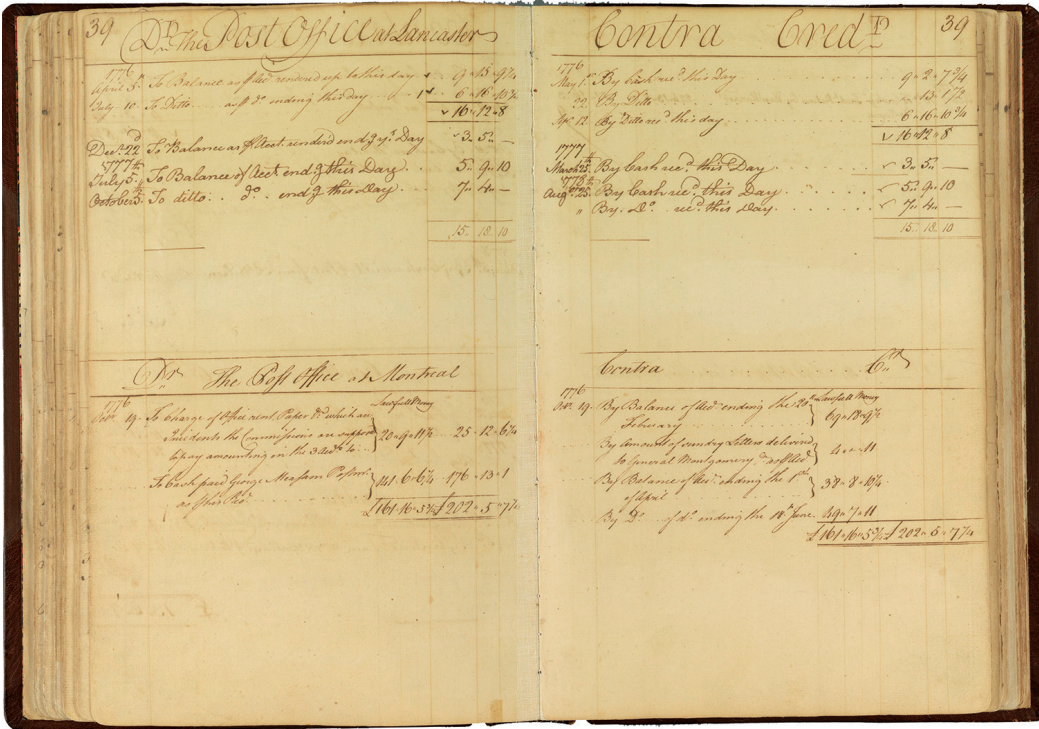 39 Dr. the Post Office at Lancaster
1776
April 5th. To Balance as rendered up to this day 9 " 15 " 9 1/4
July 10. To Ditto ending this day 6 " 16 " 10 3/4
16 " 12 " 8
Decr. 22d To Balance as Acct. renderd endg. ys. Day 3 " 5 " —
1777
July 5th. To Balance of Acct. endg this Day 5 " 9 " 10
October 5th. To ditto . . do. . endg this Day 7 " 4 " —
15 " 18 " 10
Dr. The Post Office at Montreal
1776 Lawfull Money
19. To Charge of Office rent, Paper &c. which are
Incidents the Commissions are support
to pay amounting in the 3 Accts. to 20 " 9 " 11 1/2 25 " 12 " 6 1/4
To Cash paid George Measam Postmr.
as this Rect. 141 " 6 " 6 1/4 176 " 13 " 1
£161 " 16 " 5 3/4 £202 " 5 " 7 1/4
Contra Credr. 39
1776
May 1st. By Cash recd. this Day 9 " 2 " 7 3/4
22. By Ditto 13 " 1 1/2
Sepr. 12. By Ditto recd. this day 6 " 16 " 10 3/4
16 " 12 " 8
1777
March 25th. By Cash recd. this Day 3 " 5 " —
1778
Augt. 25th. By Cash recd. this Day 5 " 9 " 10
" By Do. recd. this Day 7 " 4 " —
15 " 18 " 10
Contra Cr.
1776 Lawfull Money
19. By Balance of Acct. ending the 20th
February 69 " 18 " 9 1/2
By Amount of sundry Letters delivered
to General Montgomery 4 " " 11
By Balance of Acct. ending the 1st.
of April 38 " 8 " 10 1/4
By Do. of do. ending the 18th June. 49 " 7 " 11
£161 " 16 " 5 3/4 £202 " 5 " 7 1/4